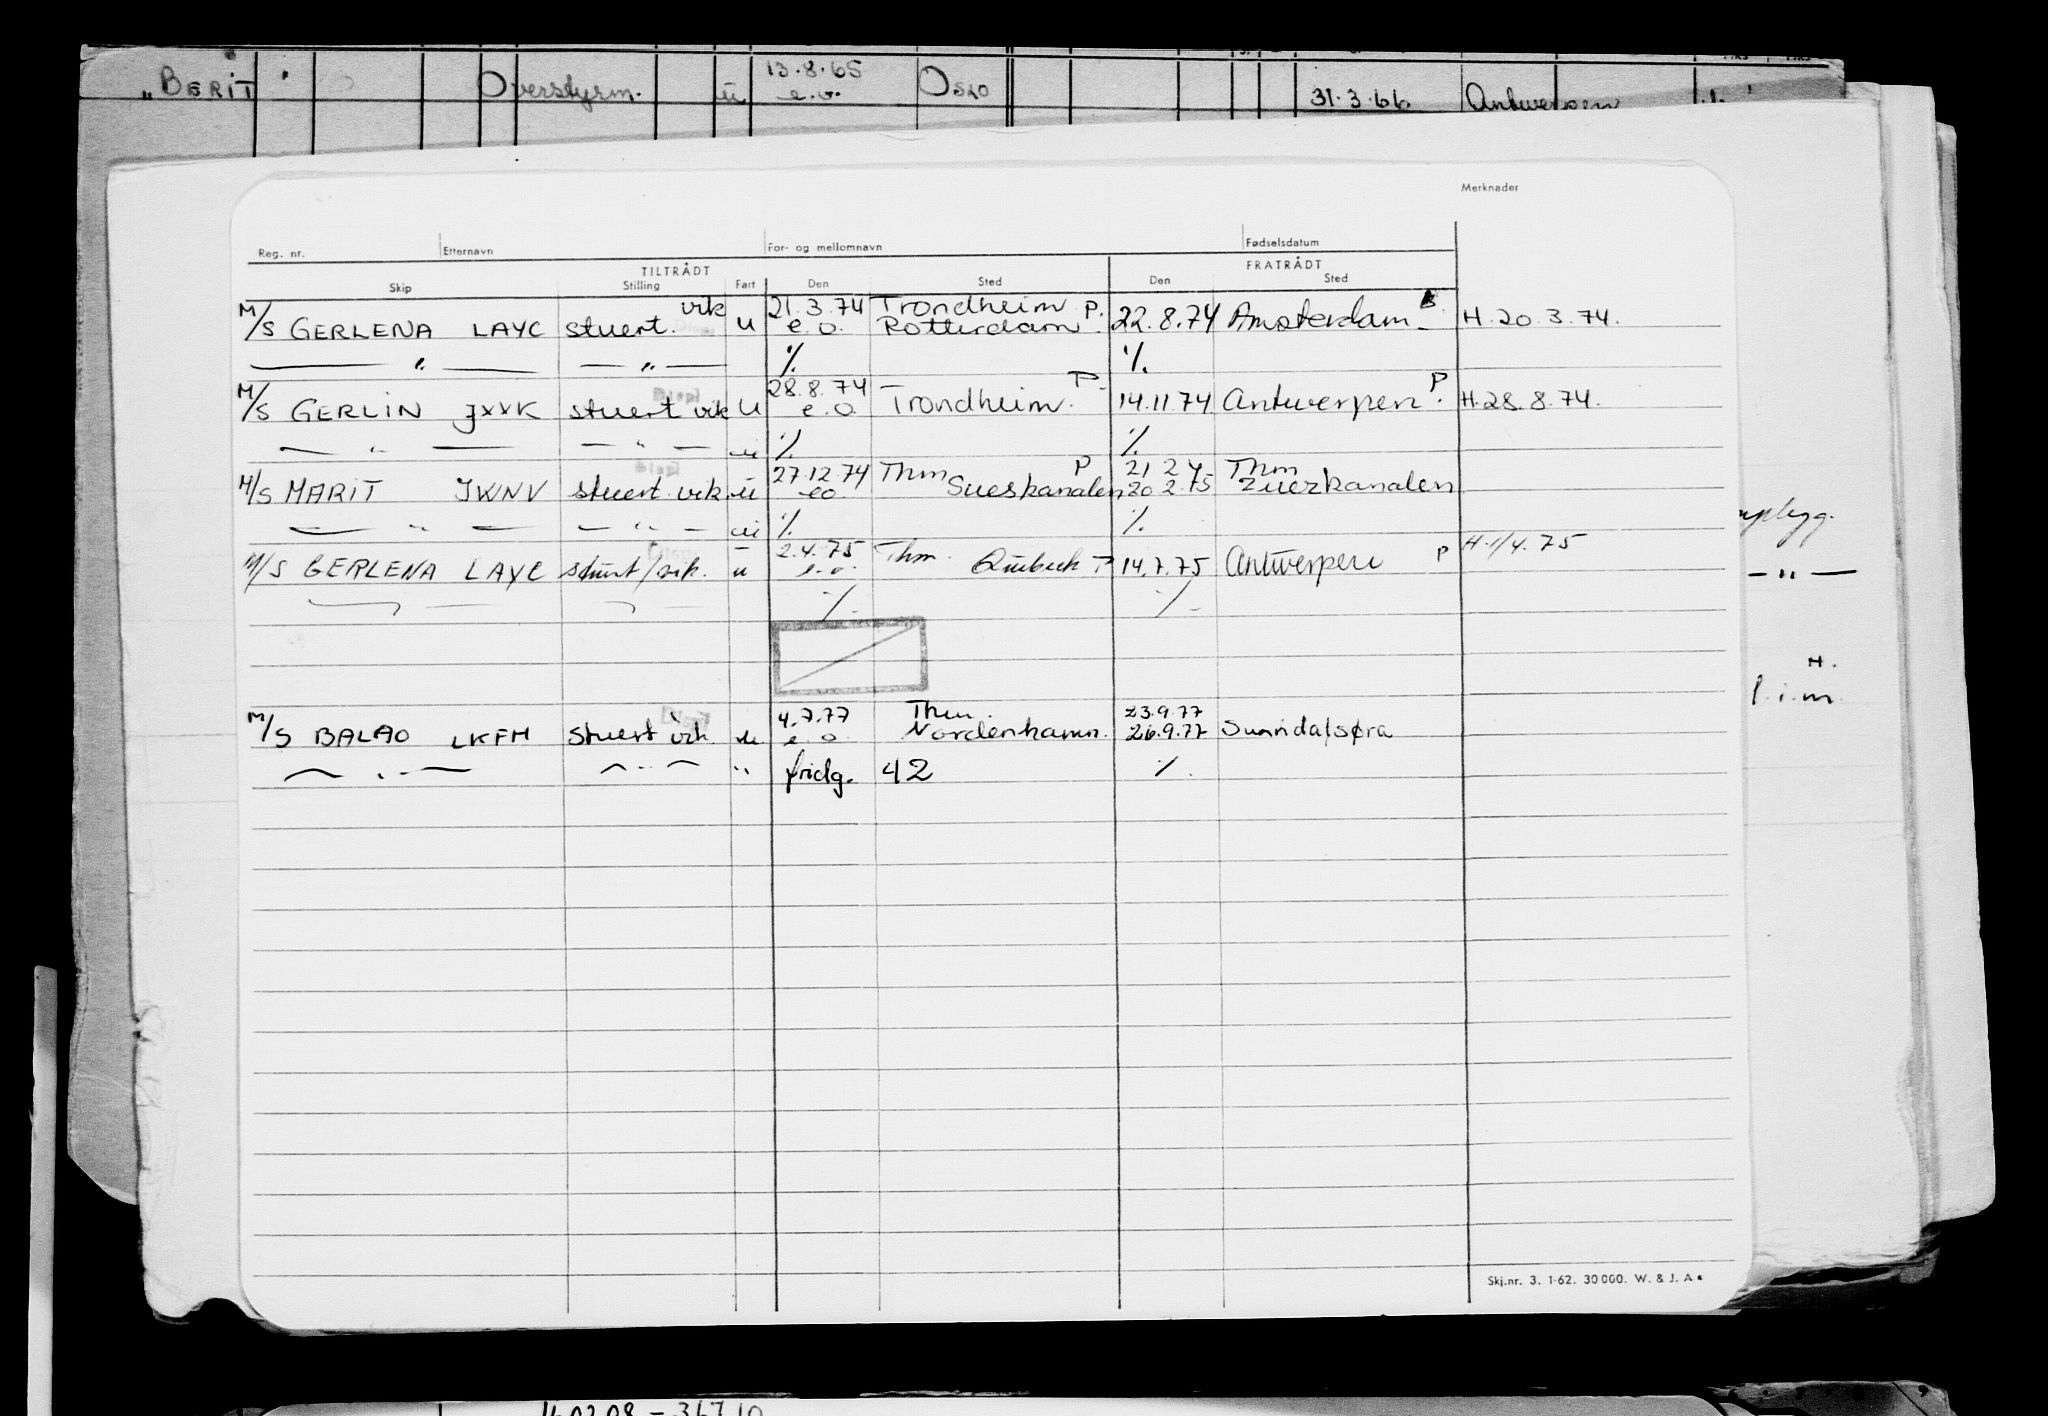 „ BERIT " Overstyrm. ü 13.8.65 e.o. Oslo 31.3.66 Antwerpen
Merknader
Reg. nr. Etternavn For- og mellomnavn Fødselsdatum
TILTRÅDT FRATRÅDT
Skip Stilling Fart Den Sted Den Sted
M/S GERLENA LAYC stuert. vik u 21.3.74 e.o. Trondheim P. Rotterdam 22.8.74 Amsterdam H. 20.3.74.
— " — — " — % %
M/S GERLIN JXXK stuert vik u 28.8.74 e.o. Trondheim. P. 14.11.74 Antwerpen P. H. 28.8.74.
— " — — " — u % %
M/S MARIT JWNV stuert vik ü 27.12.74 eo Thm Sueskanalen P 20.2.75 Thm Zuezkanalen
— " — — " — ü % %
M/S GERLENA LAYC stuert/vik. u 2.4.75 e.o. Thm. Quebeck P 14.7.75 Antwerpen P H. 1/4.75
% %
M/S BALAO LKFH stuert vik u 4.7.77 e.o. Thm. Nordenhamn. 23.9.77 26.9.77 Sunndalsøra
— " — — " — " fridg. 42 %
— " —
H.
l.i.m.
Skj.nr. 3. 1-62. 30 000. W. & J. A